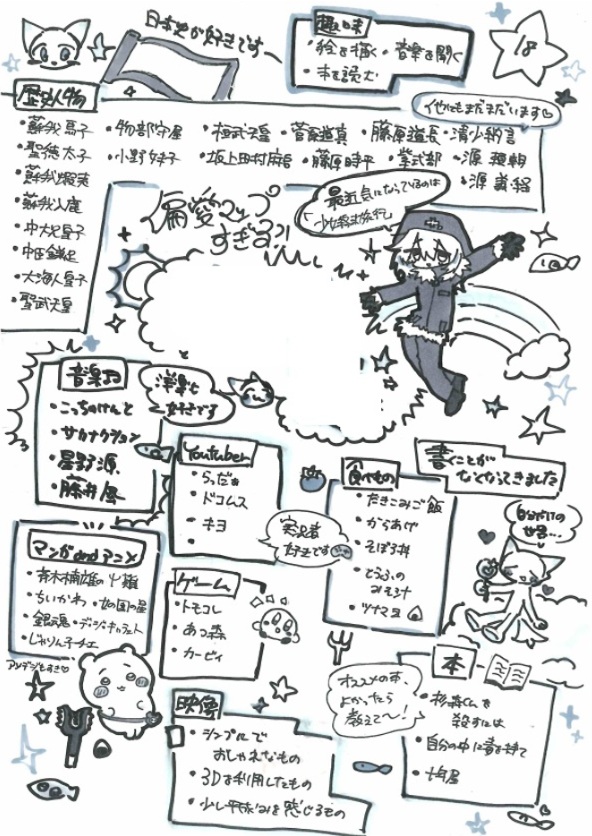 日本史が好きです
趣味
・絵を描く ・音楽を聞く
・本を読む
18
歴史人物
他にもまだまだいます♡
・蘇我馬子
・聖徳太子
・蘇我蝦夷
・蘇我入鹿
・中大兄皇子
・中臣鎌足
・大海人皇子
・聖武天皇
・物部守屋
・小野妹子
・桓武天皇
・坂上田村麻呂
・菅原道真
・藤原時平
・藤原道長
・紫式部
・清少納言
・源頼朝
・源義経
偏愛マップ
すぎる?!
最近気になっているのは
「少女終末旅行」
音楽
洋楽も
好きです
・こっちのけんと
・サカナクション
・星野源
・藤井風
Youtuber
・らっだぁ
・ドコムス
・キヨ
実況者
好きです
食べもの
・たきこみご飯
・からあげ
・そぼろ丼
・とうふの
みそ汁
・ツナマヨ
書くことが
なくなってきました
自分だけの
世界…
マンガandアニメ
・斉木楠雄のΨ難
・ちいかわ
・銀魂
・じゃりん子チエ
ゲーム
・トモコレ
・あつ森
・カービィ
本
オススメの本、
よかったら
教えて〜!
・杉森くんを
殺すには
・自分の中に毒を持て
・十年屋
映像
・シンプルで
おしゃれなもの
・3Dを利用したもの
・少し平成みを感じるもの